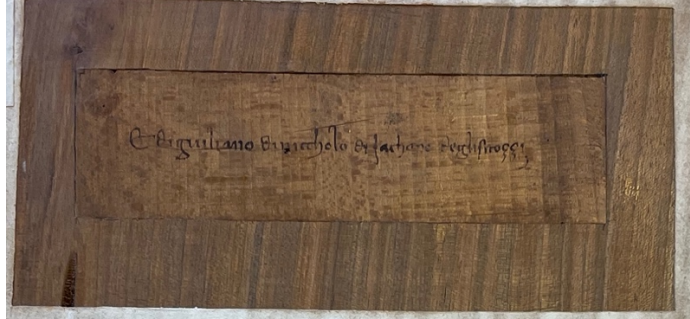 E di giuliano di niccholo di Jachopo degli strozzi